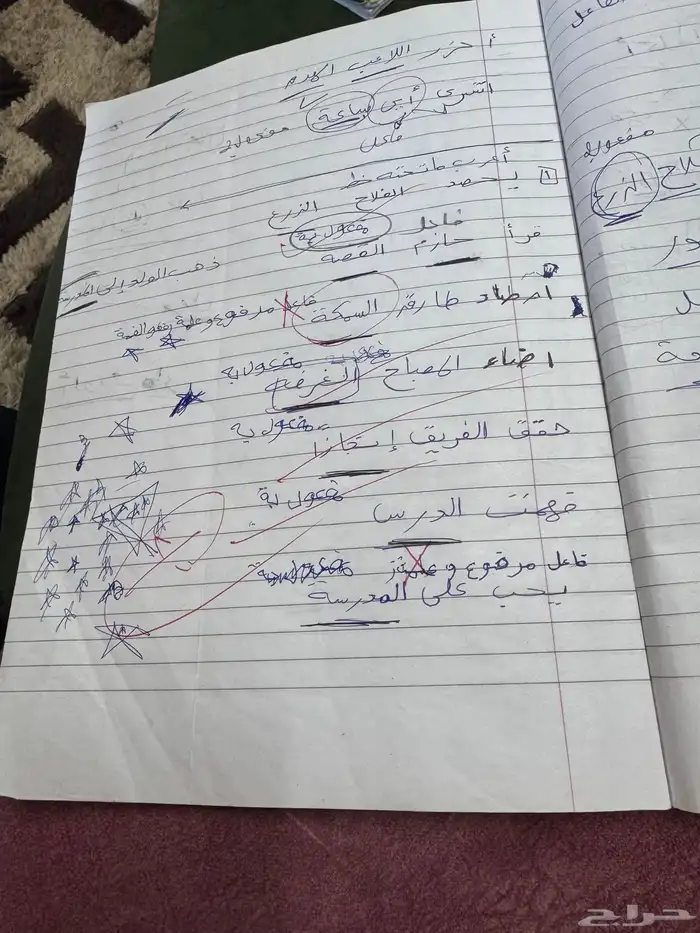 أحرز اللاعب الهدف
اشترى أبي ساعة مفعول به
فاعل
أعرب ما تحته خط
1 يحصد الفلاح الزرع
فاعل مفعول به
قرأ حازم القصة
ذهب الولد إلى المدرسة
فاعل مرفوع وعلامة رفعه الضمة
اصطاد طارق السمكة
مفعول به
اضاء المصباح الغرفة
مفعول به
حقق الفريق إتقانا
مفعول به
فهمت الدرس
فاعل مرفوع و
يحب علي المدرسة
مفعول به
الزرع
حراج